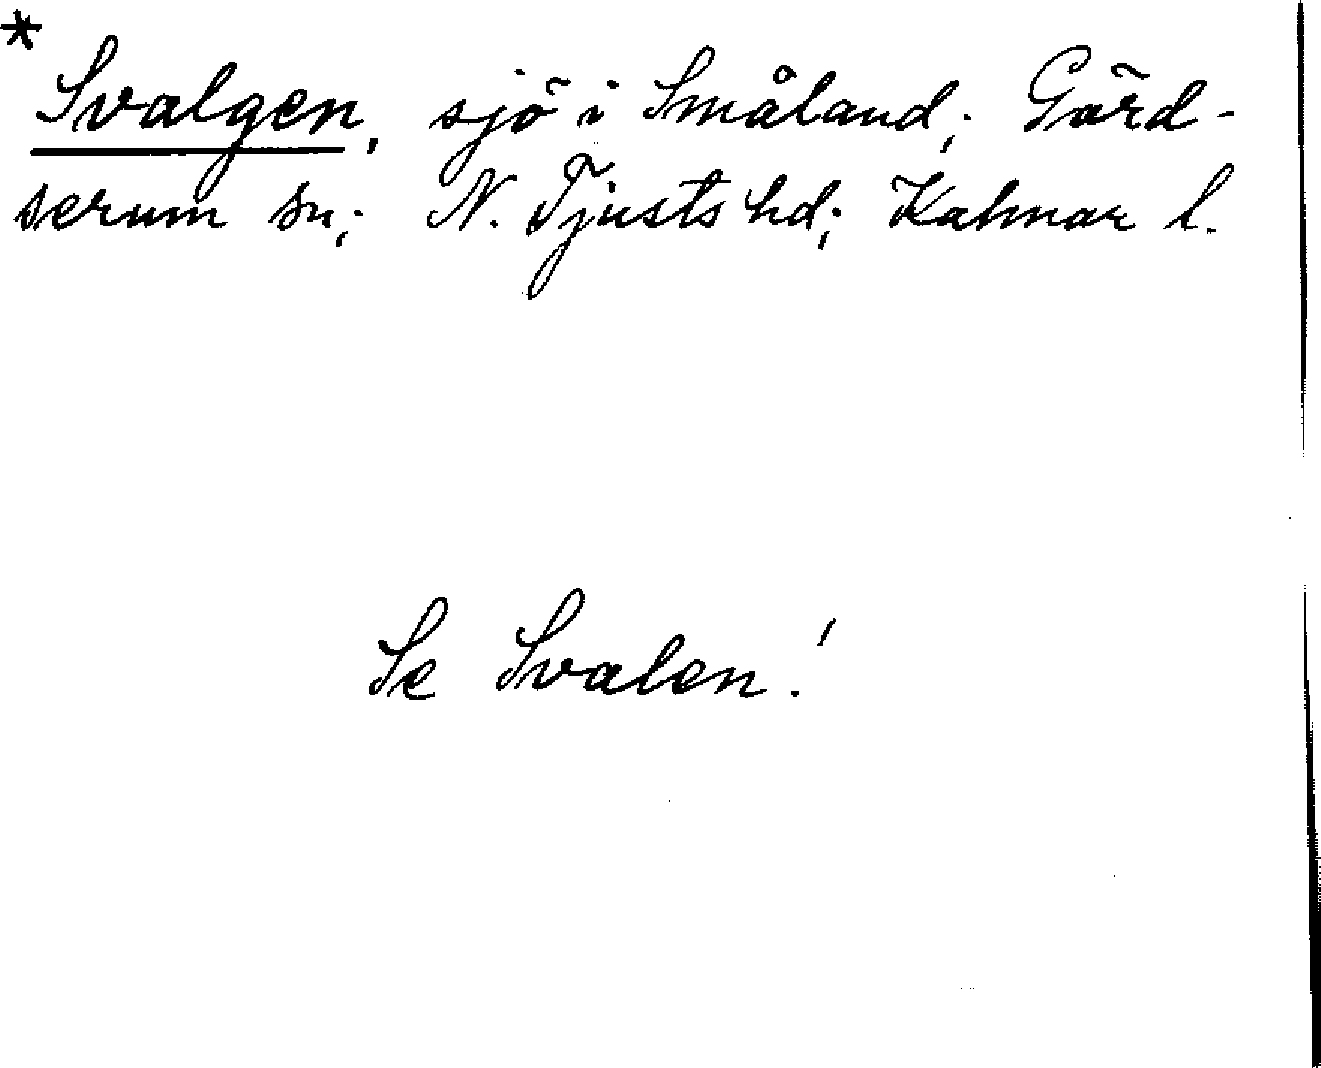 * Svalgen, sjö i Småland; Gärd-
serum sn; N. Tjusts hd; Kalmar l.
Se Svalen!